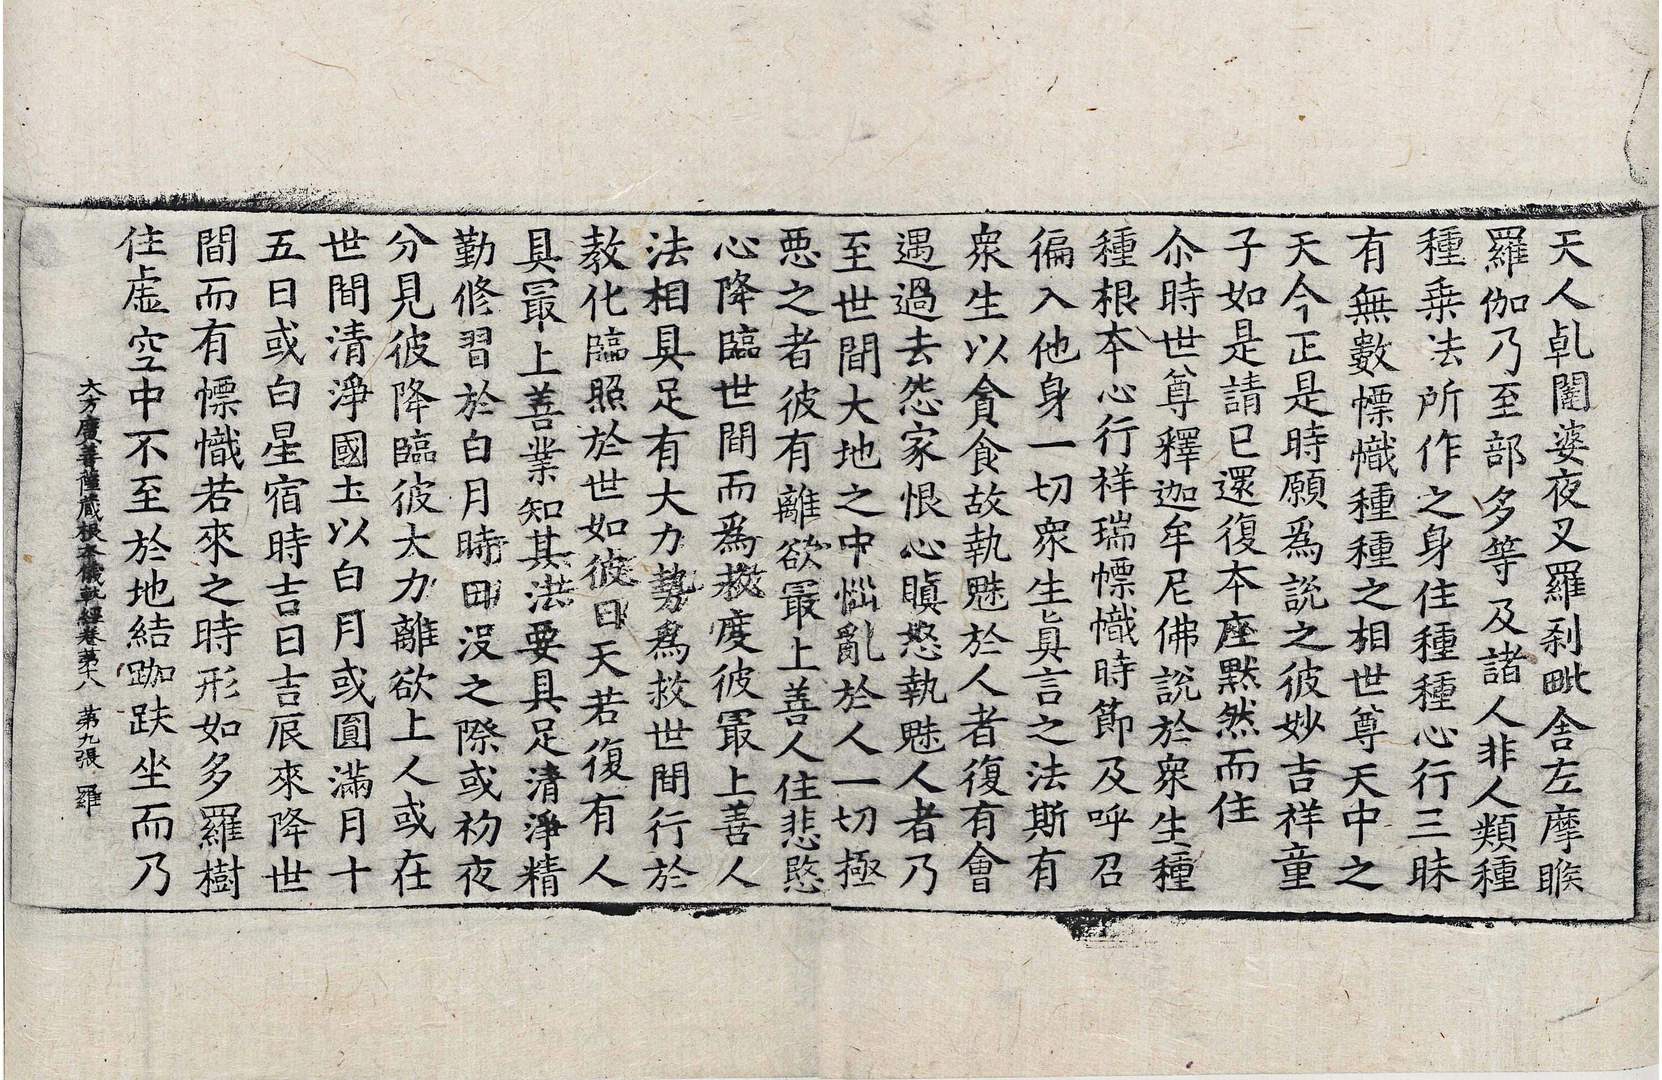 天人乹闥婆夜叉羅刹毗舍左摩睺
羅伽乃至部多等及諸人非人類種
種乗法所作之身住種種心行三昧
有無數幖幟種種之相世尊天中之
天今正是時願爲說之彼妙吉祥童
子如是請已還復本座黙然而住
尒時世尊釋迦牟尼佛說於衆生種
種根本心行祥瑞幖幟時節及呼召
徧入他身一切衆生真言之法斯有
衆生以貪食故執魅於人者復有會
遇過去怨家恨心瞋怒執魅人者乃
至世間大地之中惱亂於人一切極
惡之者彼有離欲㝡上善人住悲愍
心降臨世間而爲救度彼㝡上善人
法相具足有大力勢爲救世間行於
教化臨照於世如彼日天若復有人
具㝡上善業知其法要具足清淨精
勤修習於白月時日没之際或初夜
分見彼降臨彼大力離欲上人或在
世間清淨國土以白月或圓滿月十
五日或白星宿時吉日吉辰來降世
間而有幖幟若來之時形如多羅樹
住虛空中不至於地結跏趺坐而乃
大方廣菩薩藏根本儀軌經卷第十八 第九張 羅